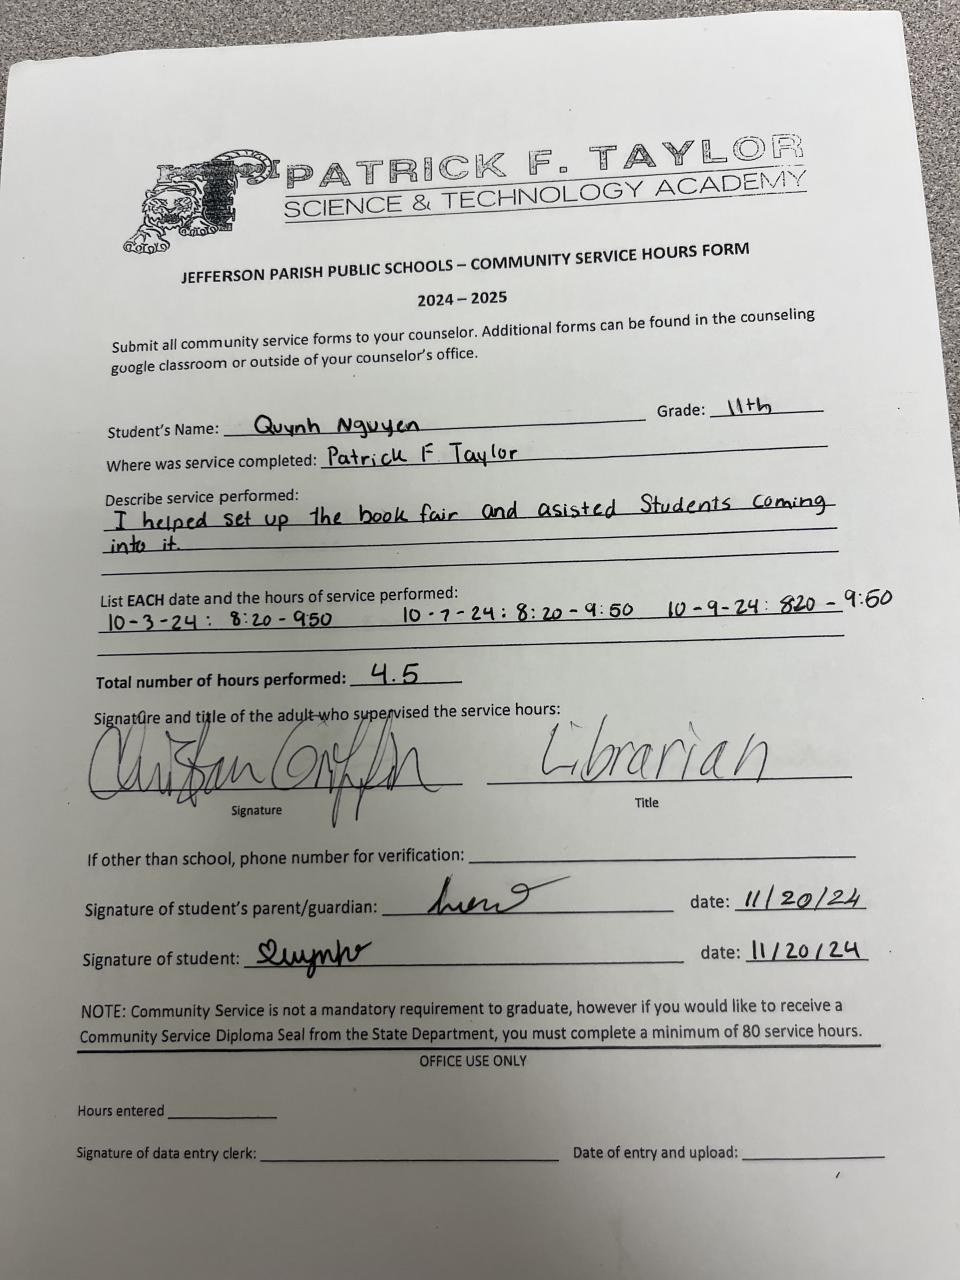 PATRICK F. TAYLOR
SCIENCE & TECHNOLOGY ACADEMY
JEFFERSON PARISH PUBLIC SCHOOLS – COMMUNITY SERVICE HOURS FORM
2024 – 2025
Submit all community service forms to your counselor. Additional forms can be found in the counseling
google classroom or outside of your counselor's office.
Student's Name: Quynh Nguyen Grade: 11th
Where was service completed: Patrick F Taylor
Describe service performed:
I helped set up the book fair and asisted Students coming
into it.
List EACH date and the hours of service performed:
10-3-24: 8:20-950 10-7-24: 8:20-9:50 10-9-24: 820-9:50
Total number of hours performed: 4.5
Signature and title of the adult who supervised the service hours:
Christian Griffin Librarian
Signature Title
If other than school, phone number for verification:
Signature of student's parent/guardian: date: 11/20/24
Signature of student: Quynh date: 11/20/24
NOTE: Community Service is not a mandatory requirement to graduate, however if you would like to receive a
Community Service Diploma Seal from the State Department, you must complete a minimum of 80 service hours.
OFFICE USE ONLY
Hours entered
Signature of data entry clerk: Date of entry and upload: